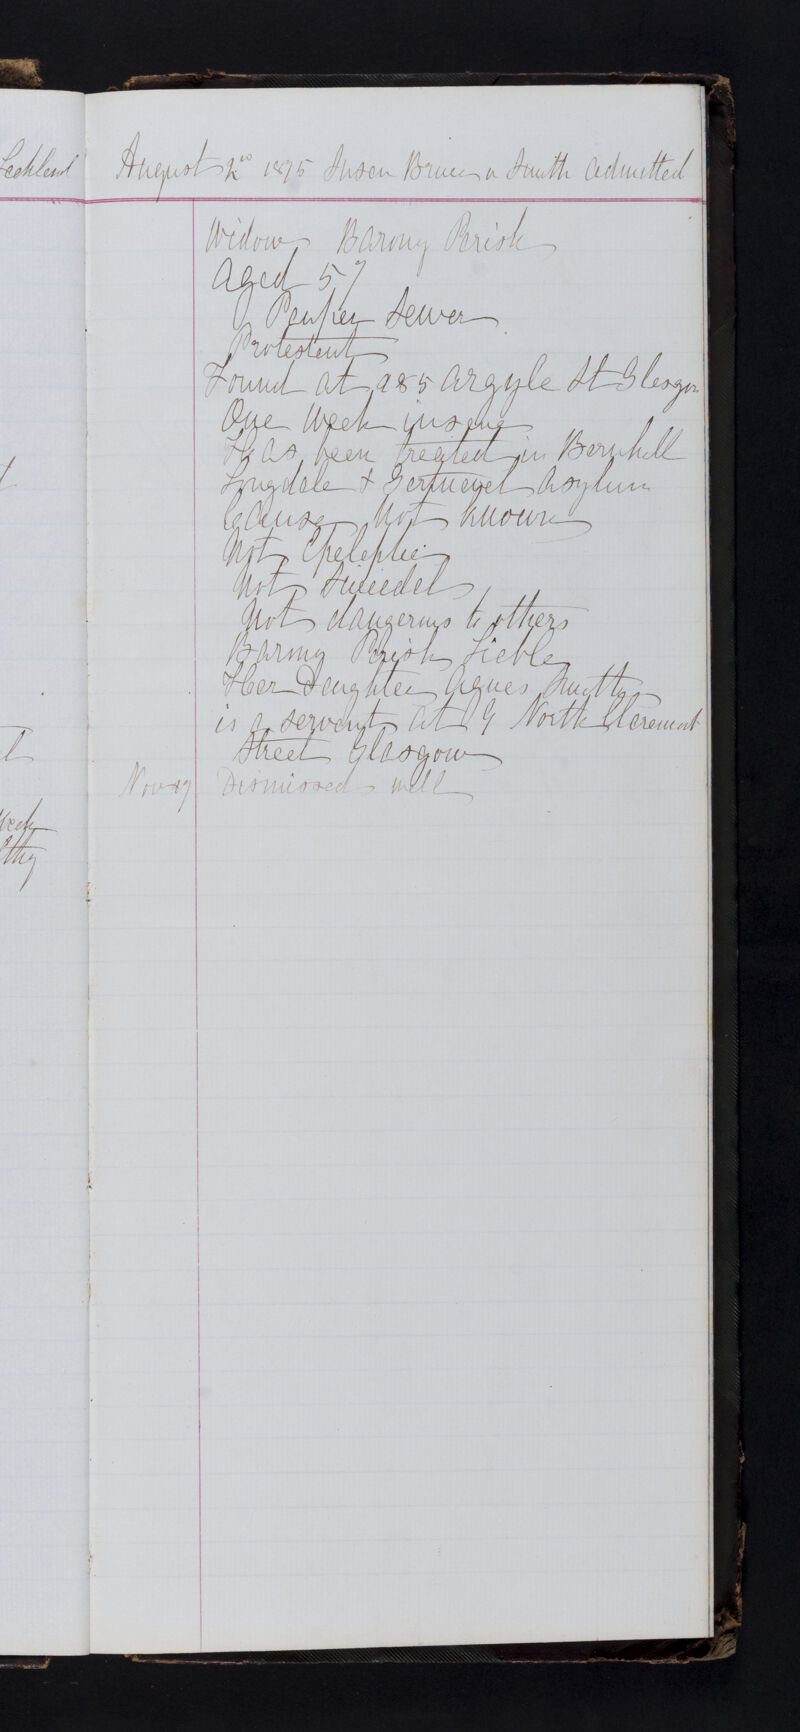 August 2nd 1875 Susan Bruce or Smith Admitted
Widow Barony Parish
Aged 57
Pauper Sewer
Protestant
Found at 985 Argyle St Glasgow
One Week insane
Has been treated in Barnhill
Longdale & Gartnavel Asylum
Cause Not known
Not Epeleptic
Not Suicedal
Not dangerous to others
Barony Parish Lieble
Her Daughter Agnes Smith
is a servant at 9 North Claremont
Street Glasgow
Nov 17 Dismissed well